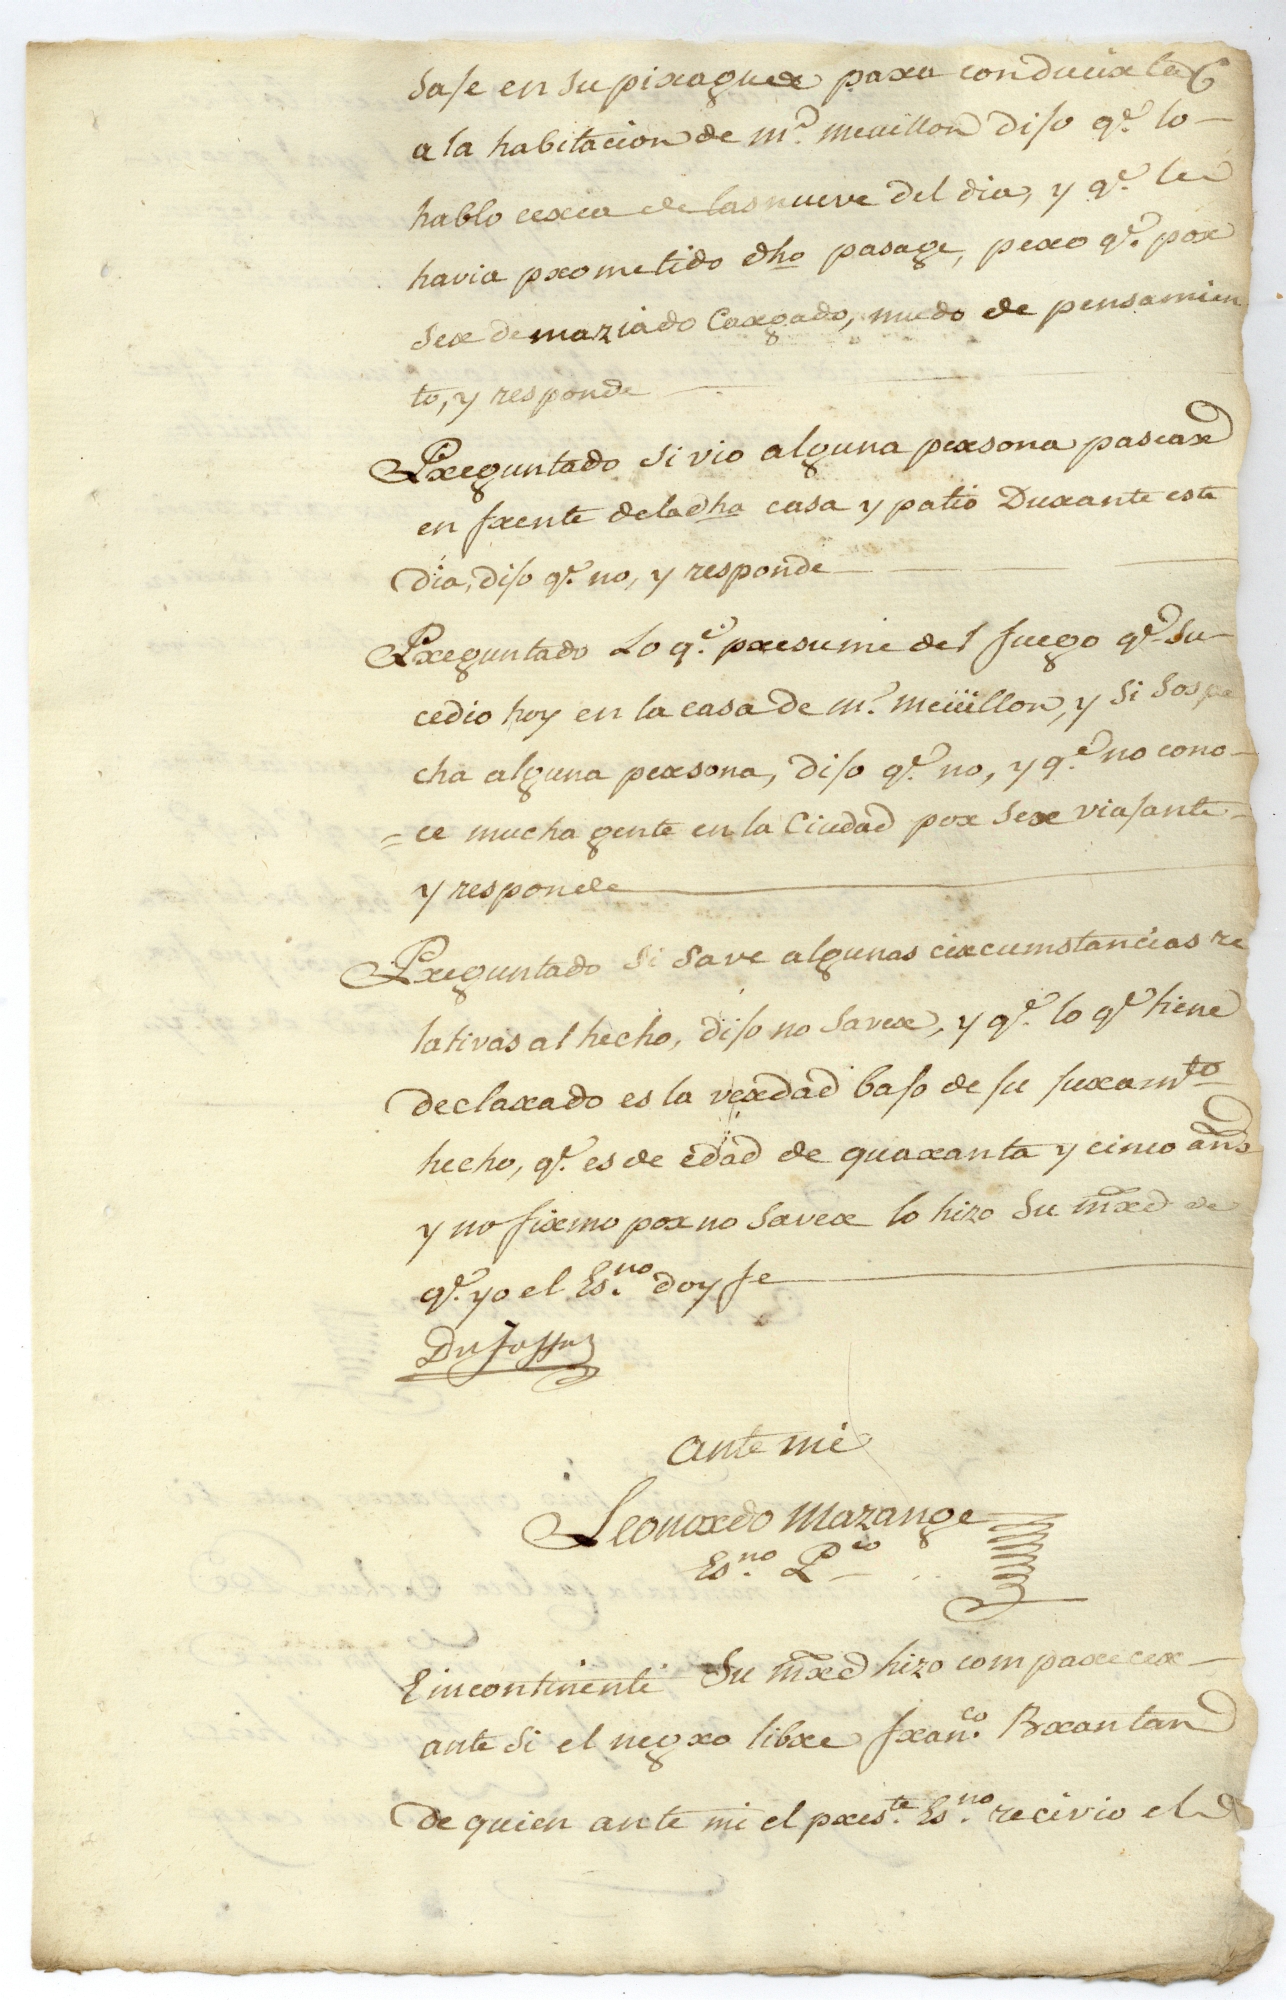 saje en su piraguer para conducirle
a la habitacion de Mr. Meuillon dijo qe. lo
hablo cerca de las nueve del dia, y qe. le
havia prometido dho pasage, pero qe. por
ser demaziado Cargado, mudo de pensamien
to, y responde
Preguntado si vio alguna persona pasear
en frente dela dha casa y patio Durante este
dia, dijo qe. no, y responde
Preguntado Lo qe. presume del fuego qe. su-
cedio hoy en la casa de Mr. Meüillon, y si sospe
cha alguna persona, dijo qe. no, y qe. no cono-
=ce mucha gente en la Ciudad por ser viajante
y responde
Preguntado si save algunas circumstancias re
lativas al hecho, dijo no saver, y qe. lo qe. tiene
declarado es la verdad bajo de su juramto
hecho, qe. es de edad de quaranta y cinco años
y no firmo por no saver lo hizo Su mrxd de
qe. yo el Esno. doy fe
Dufossat
ante mi
Leonardo Mazange
Esno. Pco
E incontinenti Su mrxd hizo comparecer
ante si el negro libre franco. Brantan
de quien ante mi el preste. Esno. recivio el